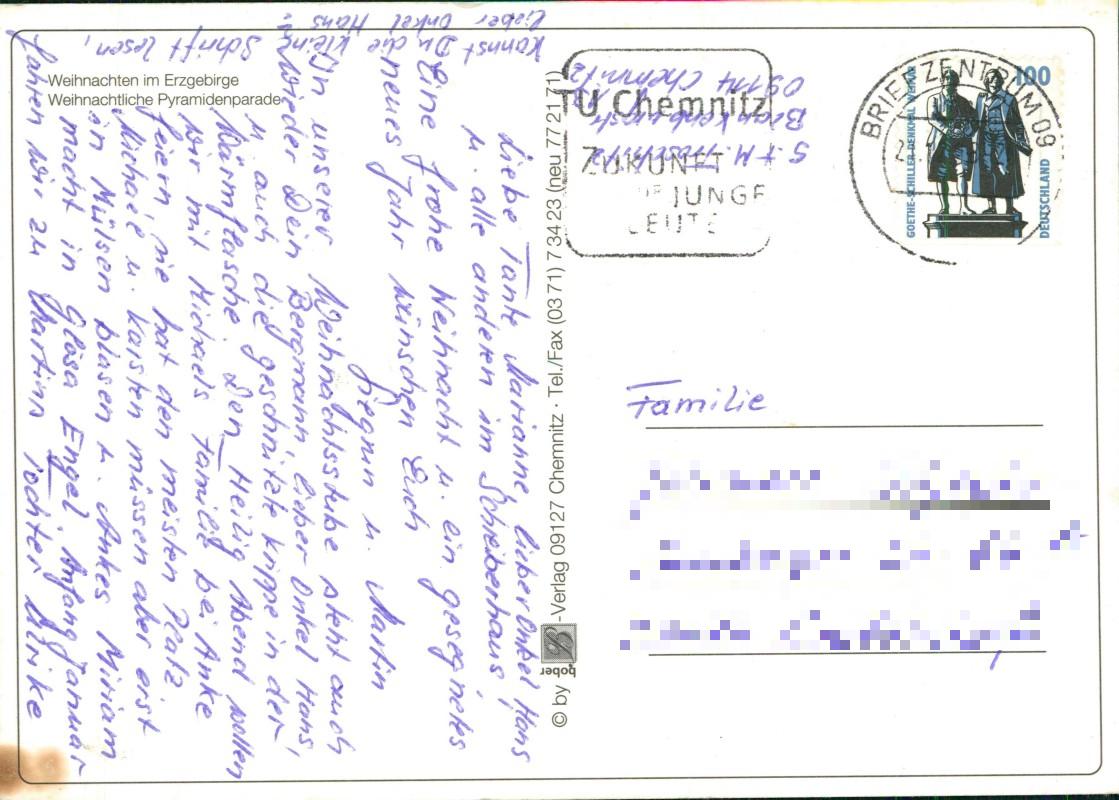 Weihnachten im Erzgebirge
Weihnachtliche Pyramidenparade
Liebe Tante Marianne lieber Onkel Hans
u. alle anderen im Schreiberhaus,
Eine frohe Weihnacht u. ein gesegnetes
neues Jahr wünschen Euch
u. Martin
In unserer Weihnachtsstube steht auch
wieder Dein Bergmann lieber Onkel Hans,
u. auch die geschnitzte Krippe in der
Wärmflasche. Den Heilig Abend wollen
wir mit Michaels Familie bei Anke
feiern sie hat den meisten Platz
Michael u. Karsten müssen aber erst
in Mülsen blasen u. Ankes Miriam
macht in Glösa Engel Anfang Januar
fahren wir zu Martins Tochter Ulrike
Kannst Du die kleine Schrift lesen,
lieber Onkel Hans?
© by gober B -Verlag 09127 Chemnitz · Tel./Fax (03 71) 7 34 23 (neu 77 21 71)
S + M
09114 Chemnitz
TU Chemnitz
ZUKUNFT
JUNGE
LEUTE
BRIEFZENTRUM 09
100
GOETHE-SCHILLER-DENKMAL WEIMAR
DEUTSCHLAND
Familie